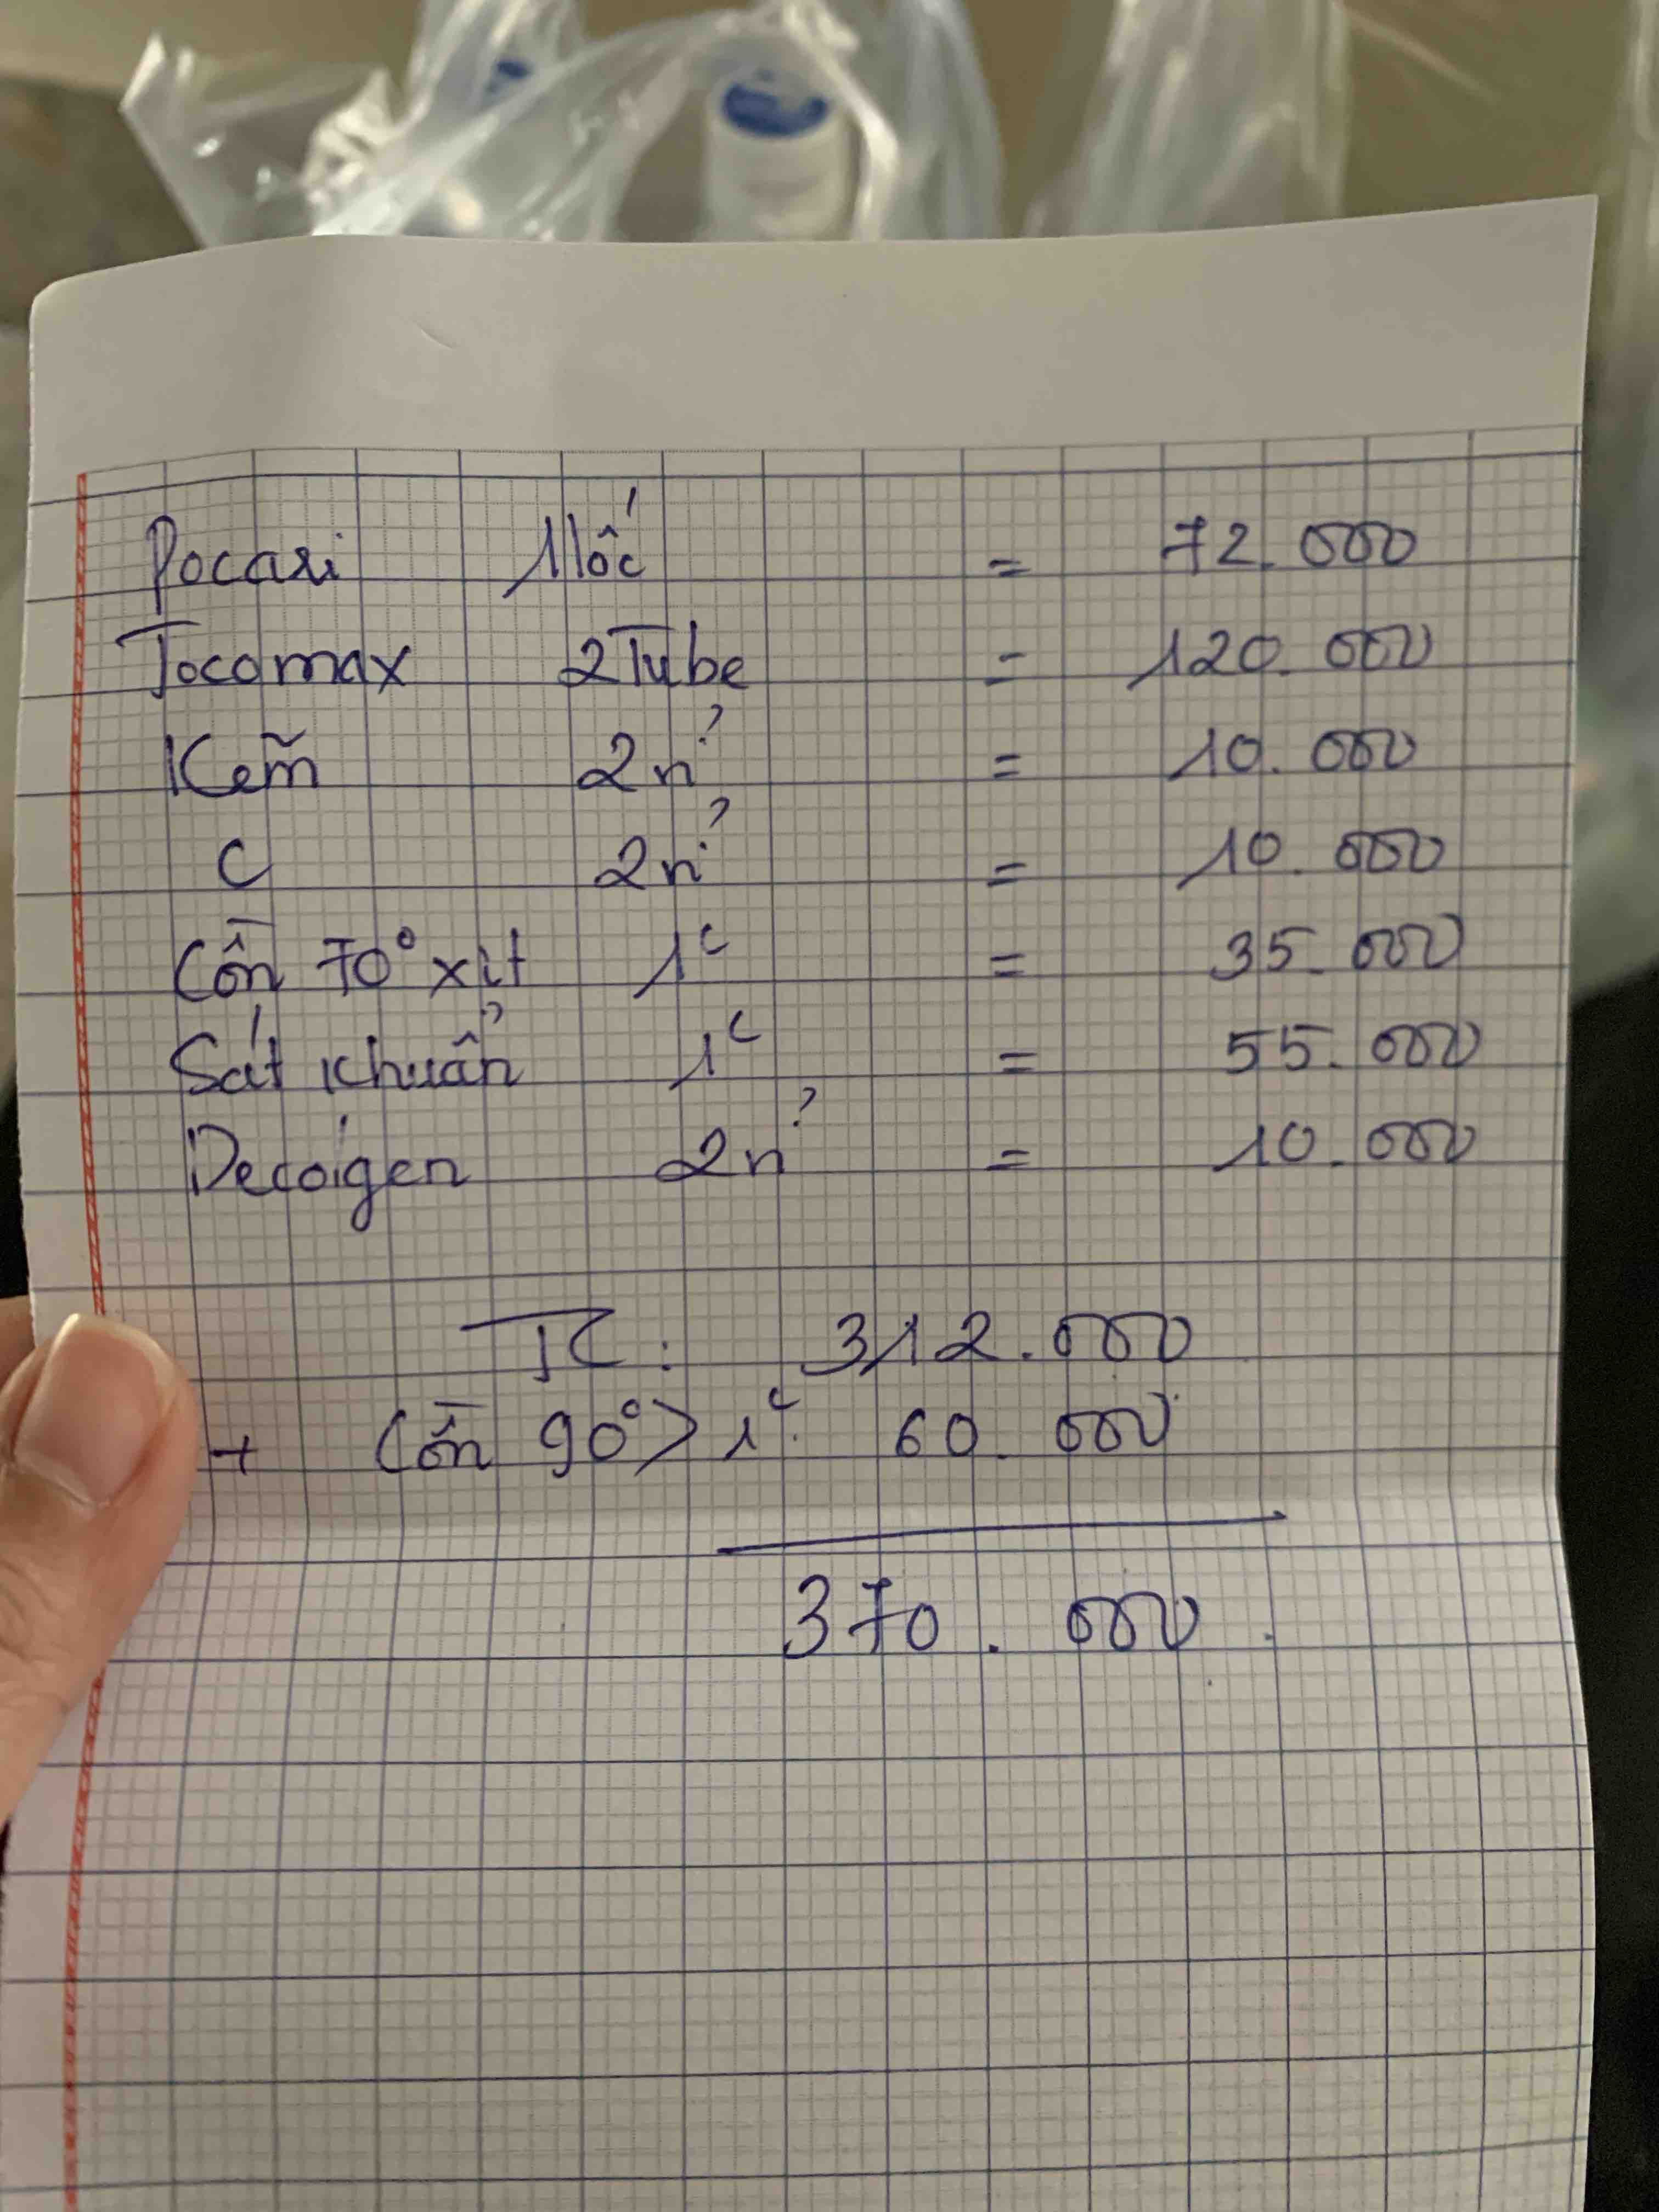 Pocari 1 lốc = 72.000
Tocomax 2 Tube = 120.000
Kẽm 2 n̉ = 10.000
C 2 n̉ = 10.000
Cồn 70° xịt 1c = 35.000
Sát khuẩn 1c = 55.000
Decoigen 2 n̉ = 10.000
TC: 312.000
+ Cồn 90° > 1c. 60.000
370.000